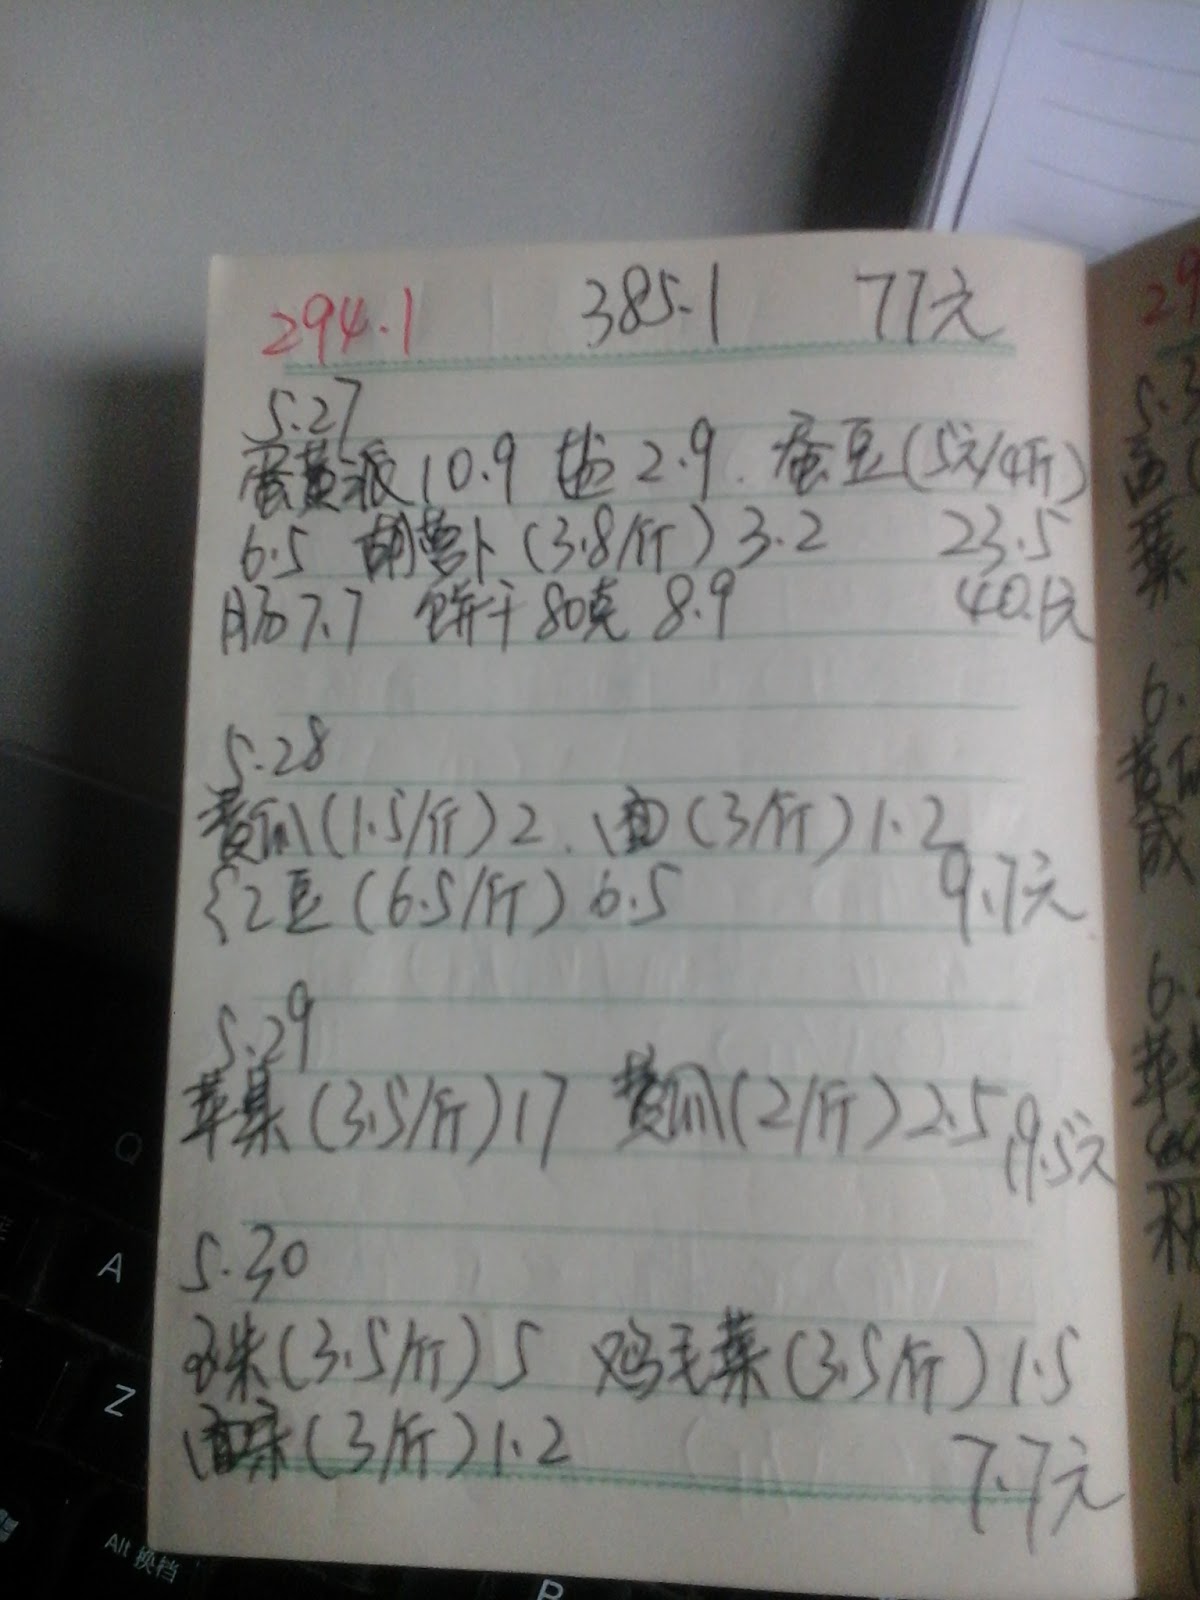 294.1 385.1 77元
5.27
蛋黄派10.9 盐2.9. 蚕豆(5元/4斤)
6.5 胡萝卜(3.8/斤)3.2 23.5
肠7.7 饼干80克 8.9 40.1元
5.28
黄瓜(1.5/斤)2. (3/斤)1.2
红豆(6.5/斤)6.5 9.7元
5.29
苹果(3.5/斤)17 黄瓜(2/斤)2.5 19.5元
5.30
(3.5/斤)5 鸡毛菜(3.5/斤)1.5
(3/斤)1.2
7.7元
29
5.3
6.
黄瓜
6.
苹
6
Q
A
Z
Alt 换档